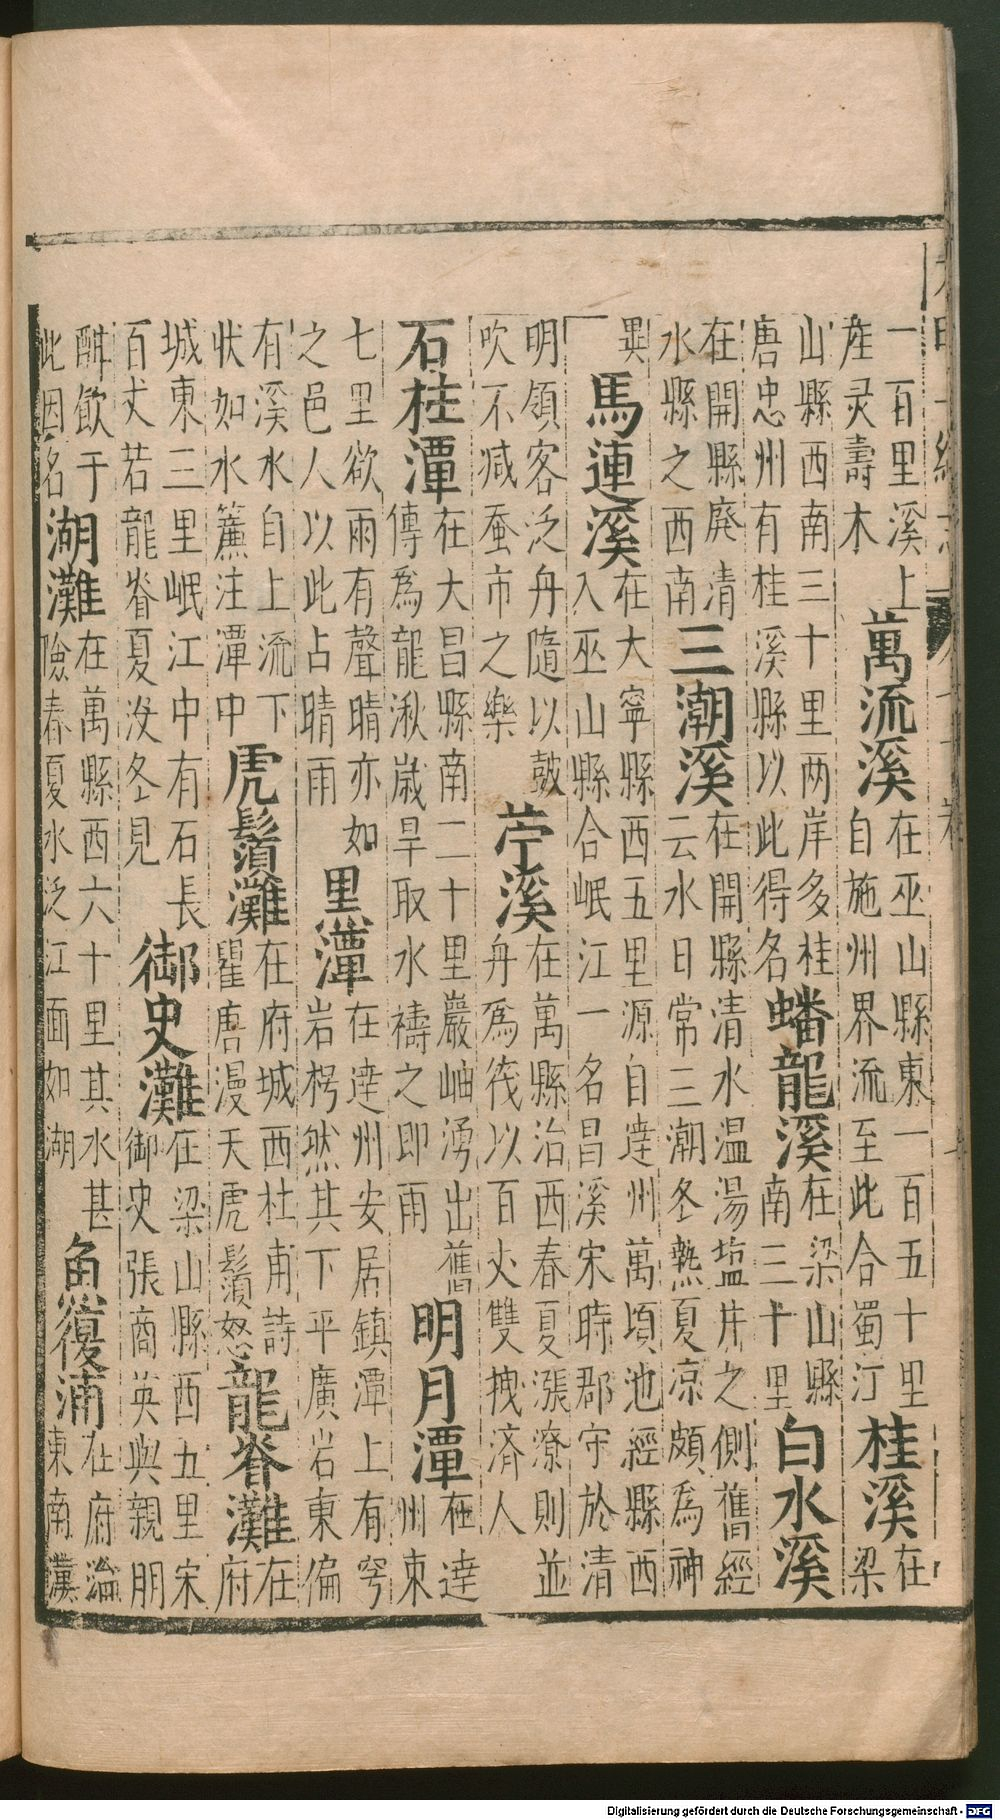 一百里溪上
産灵壽木
萬流溪
在巫山縣東一百五十里
自施州界流至此合蜀江
桂溪
在
梁
山縣西南三十里两岸多桂
唐忠州有桂溪縣以此得名
蟠龍溪
在梁山縣
南三十里
白水溪
在開縣廢清
水縣之西南
三潮溪
在開縣清水温湯塩井之側舊經
云水日常三潮冬熱夏凉頗為神
異
馬連溪
在大寧縣西五里源自逹州萬頃池經縣西
入巫山縣合岷江一名昌溪宋時郡守於清
明領客泛舟隨以鼓
吹不减蚕市之樂
苧溪
在萬縣治西春夏漲潦則並
舟爲筏以百丈雙拽济人
石柱潭
在大昌縣南二十里巖岫湧出舊
傳爲龍湫歲旱取水禱之即雨
明月潭
在逹
州東
七里欲雨有聲晴亦如
之邑人以此占晴雨
黑潭
在逹州安居鎮潭上有穹
岩枵然其下平廣岩東偏
有溪水自上流下
状如水簾注潭中
虎鬚灘
在府城西杜甫詩
瞿唐漫天虎鬚怒
龍脊灘
在
府
城東三里岷江中有石長
百丈若龍脊夏没冬見
御史灘
在梁山縣西五里宋
御史張商英與親朋
酣飲于
此因名
湖灘
在萬縣西六十里其水甚
險春夏水泛江面如湖
魚復浦
在府治
東南漢
Digitalisierung gefördert durch die Deutsche Forschungsgemeinschaft - DFG